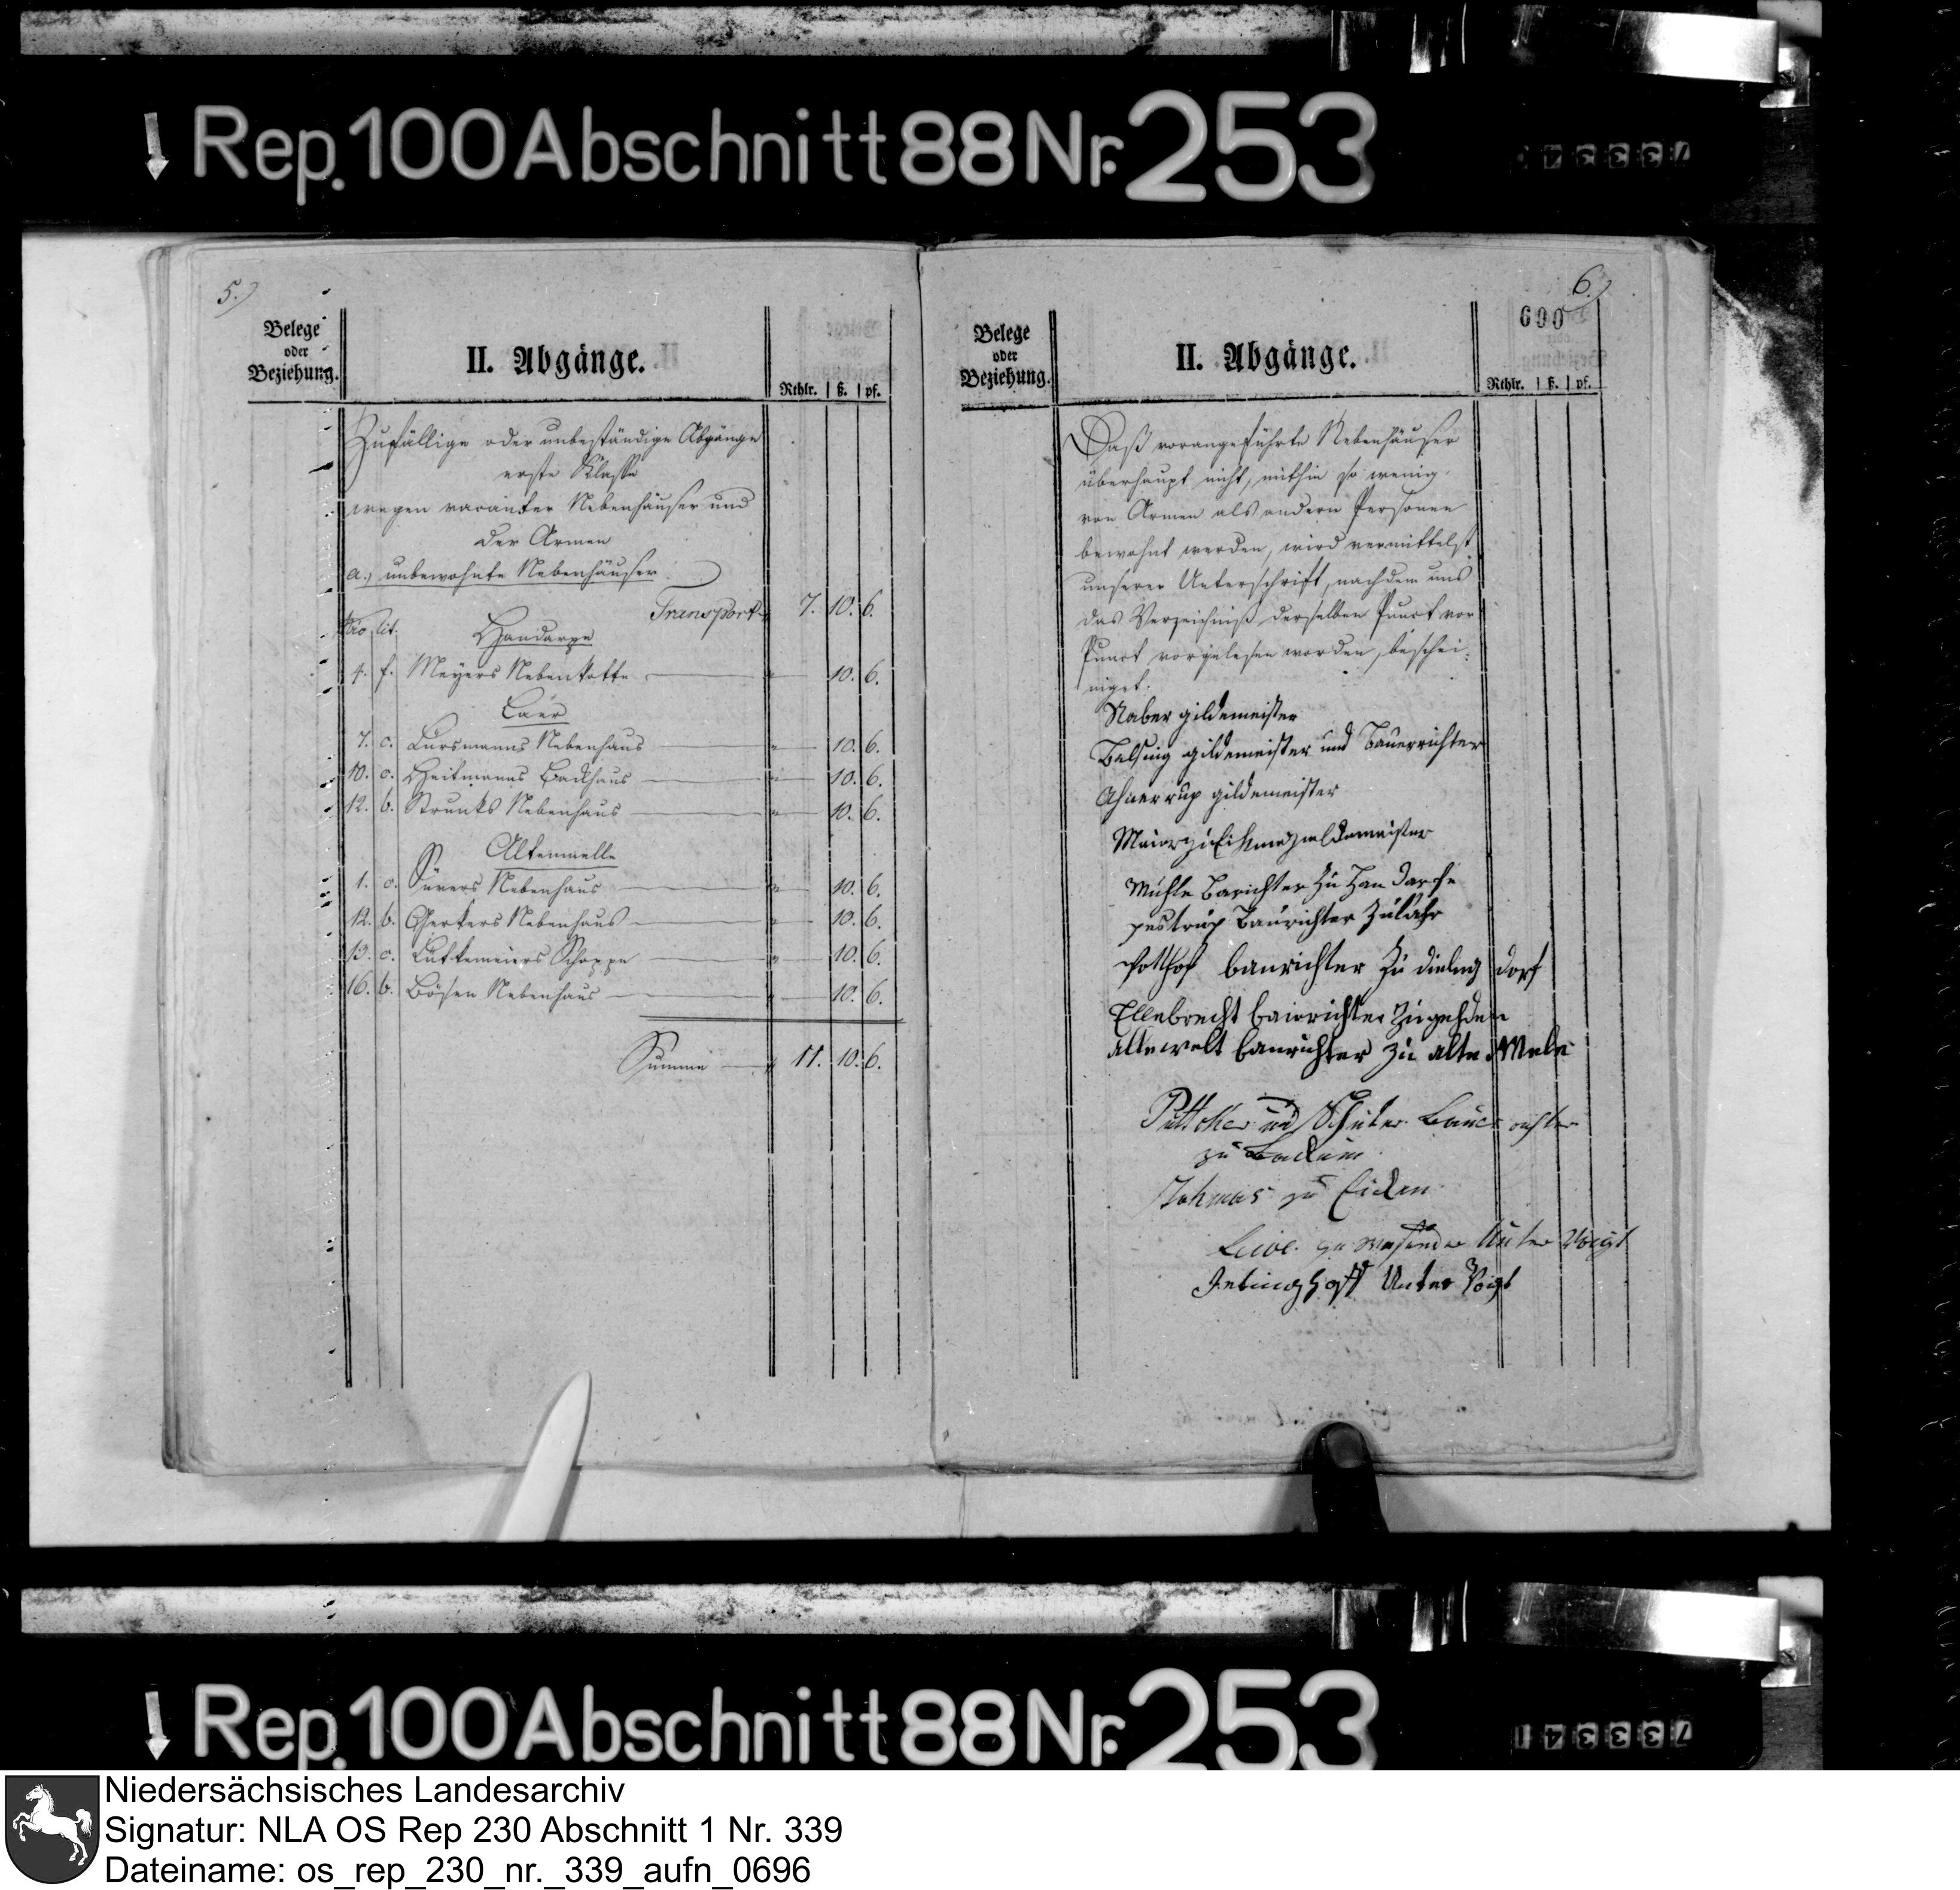 Rep. 100 Abschnitt 88 Nr. 253
73334
5.)
Belege
oder
Beziehung.
II. Abgänge.
Rthlr. ß. pf.
Zufällige oder unbeständige Abgänge
erste Klasse
wegen vacanter Nebenhäuser und
der Armen
a., unbewohnte Nebenhäuser
Transport 7. 10. 6.
Nro lit. Handarpe
4. f. Meyers Nebenkotte " 10. 6.
Laer
7. c. Lursmanns Nebenhaus " 10. 6.
10. c. Heitmanns Backhaus " 10. 6.
12. b. Strunks Nebenhaus " 10. 6.
Altenmelle
1. c. Süvers Nebenhaus " 10. 6.
12. b. Gerkers Nebenhaus " 10. 6.
13. c. Lutkemeiers Schoppe " 10. 6.
16. b. Bösen Nebenhaus " 10. 6.
Summa 11. 10. 6.
6.)
600
Belege
oder
Beziehung.
II. Abgänge.
Rthlr. ß. pf.
Daß vorangeführte Nebenhäuser
überhaupt nicht, mithin so wenig
von Armen als andern Personen
bewohnt werden, wird vermittelst
unserer Unterschrift, nachdem uns
das Verzeichniß derselben Punct vor
Punct vorgelesen worden, beschei-
niget.
Naber gildemeister
gildemeister und Bauerrichter
gildemeister
Mühle Barichter zu Handarpe
pestrup Baurichter zu Lahr
Potthof baurichter zu dielingdorf
Ellebrecht baurichter zu gehden
altewelt baurichter zu alte Mele
und Schuter Bauerrichter
zu Backum
zu Eicken
Unter Voigt
Unter Voigt
Rep. 100 Abschnitt 88 Nr. 253
Niedersächsisches Landesarchiv
Signatur: NLA OS Rep 230 Abschnitt 1 Nr. 339
Dateiname: os_rep_230_nr._339_aufn_0696